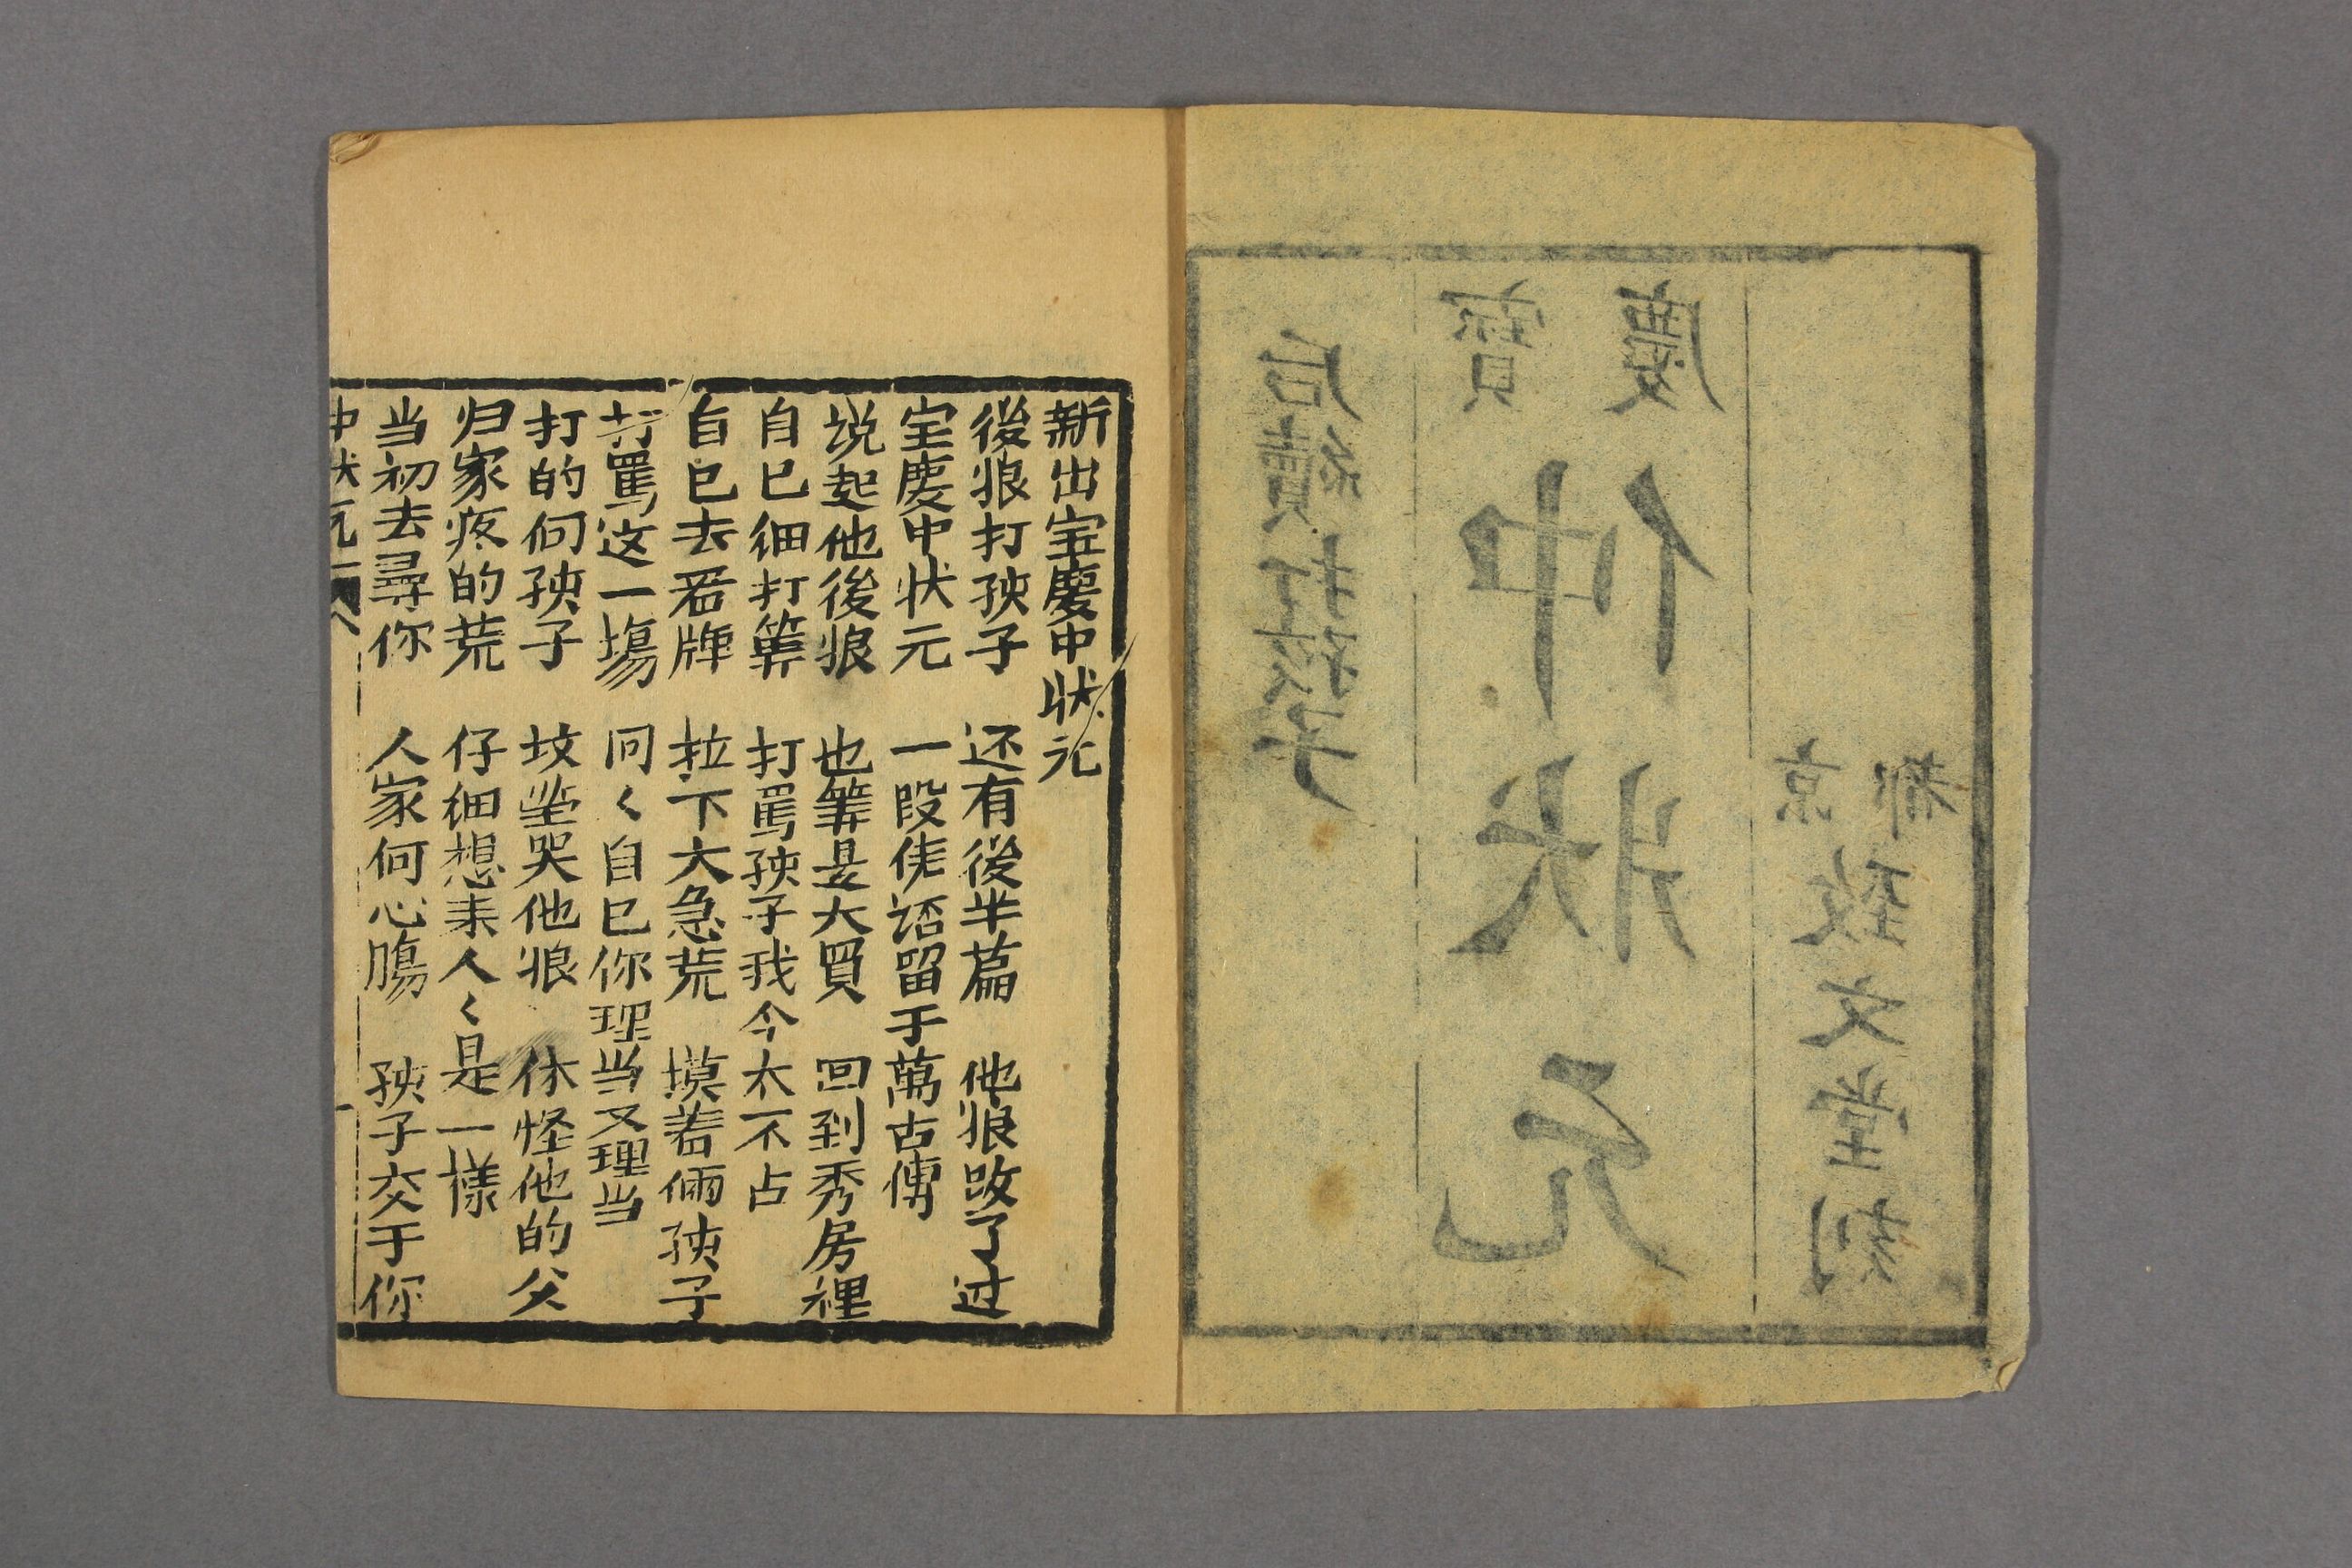 都京致文堂刻
寳慶
仲狀元
后續打孩子
新出宝慶中状元
後狼打孩子 还有後半篇 他狼改了过
宝慶中状元 一段佳话留于萬古傳
说起他後狼 也筭是大買 回到秀房裡
自己细打筭 打罵孩子我今太不占
自己去看牌 拉下大急荒 摸着俩孩子
打罵这一場 问〱自己你理当又理当
打的何孩子 坟茔哭他狼 休怪他的父
归家疼的荒 仔细想来人〱是一樣
当初去尋你 人家何心腸 孩子交于你
中状元 一